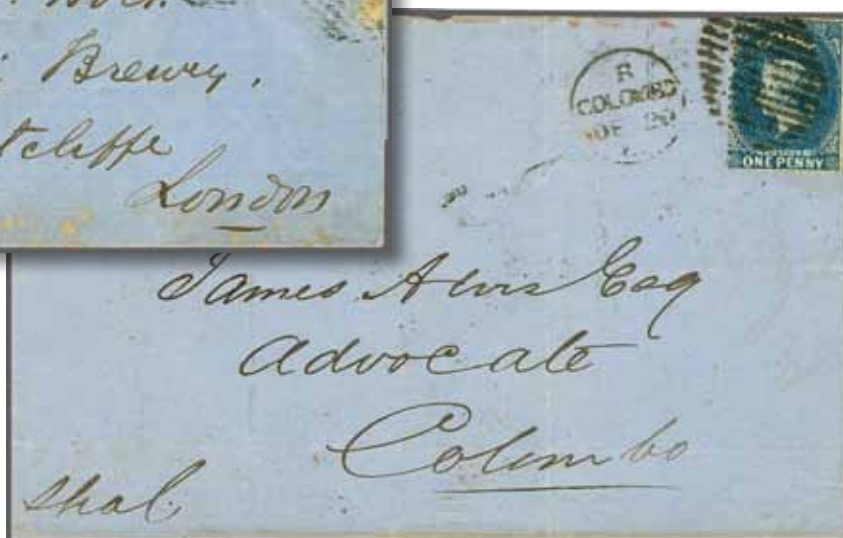 Brewery,
London
B
COLOMBO
DE 20
ONE PENNY
James Alvis Esq
Advocate
Colombo